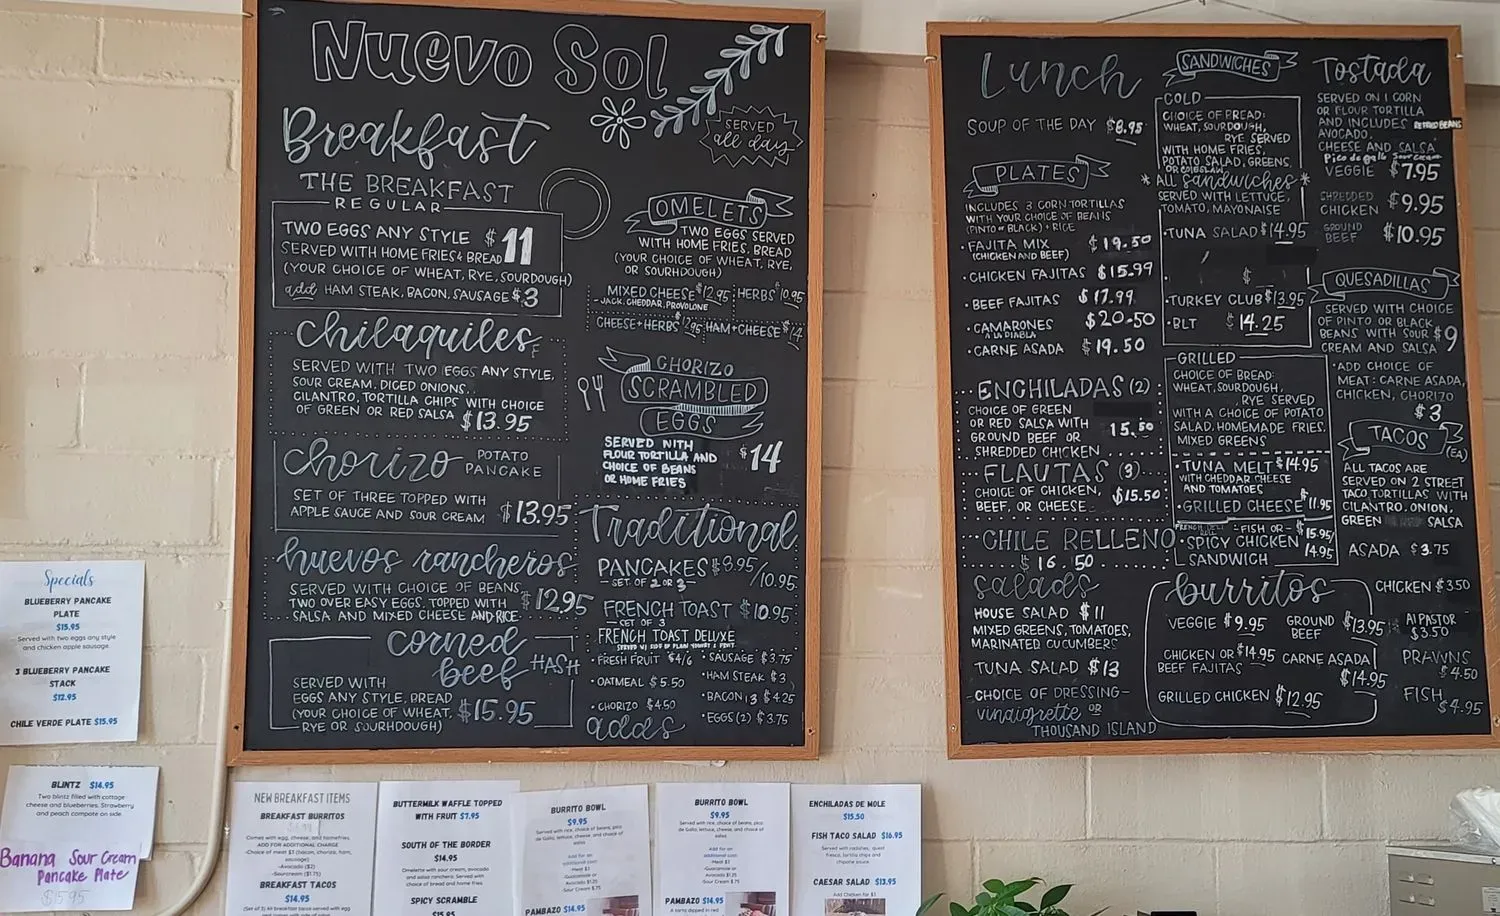 Nuevo Sol
Breakfast
SERVED
all day
THE BREAKFAST
REGULAR
TWO EGGS ANY STYLE $11
SERVED WITH HOME FRIES & BREAD
(YOUR CHOICE OF WHEAT, RYE, SOURDOUGH)
add HAM STEAK, BACON, SAUSAGE $3
chilaquiles
SERVED WITH TWO EGGS ANY STYLE,
SOUR CREAM, DICED ONIONS,
CILANTRO, TORTILLA CHIPS WITH CHOICE
OF GREEN OR RED SALSA $13.95
chorizo POTATO
PANCAKE
SET OF THREE TOPPED WITH
APPLE SAUCE AND SOUR CREAM $13.95
huevos rancheros
SERVED WITH CHOICE OF BEANS,
TWO OVER EASY EGGS, TOPPED WITH $12.95
SALSA AND MIXED CHEESE AND RICE
corned
beef HASH
SERVED WITH
EGGS ANY STYLE, BREAD
(YOUR CHOICE OF WHEAT, $15.95
RYE OR SOURHDOUGH)
OMELETS
TWO EGGS SERVED
WITH HOME FRIES, BREAD
(YOUR CHOICE OF WHEAT, RYE,
OR SOURHDOUGH)
MIXED CHEESE $12.95 HERBS $10.95
- JACK, CHEDDAR, PROVOLONE
CHEESE + HERBS $12.95 HAM + CHEESE $14
CHORIZO
SCRAMBLED
EGGS
SERVED NITH
FLOUR TORTILLA AND
CHOICE OF BEANS $14
OR HOME FRIES
Traditional
PANCAKES $8.95/10.95
- SET OF 2 OR 3 -
FRENCH TOAST $10.95
- SET OF 3
FRENCH TOAST DELUXE
SERVED W/ SIDE OF PLAIN YOGURT & FRUIT
• FRESH FRUIT $4/6 • SAUSAGE $3.75
• OATMEAL $5.50 • HAM STEAK $3
• BACON 3 $4.25
• CHORIZO $4.50
adds • EGGS (2) $3.75
Lunch
SOUP OF THE DAY $8.95
PLATES
INCLUDES 3 CORN TORTILLAS
WITH YOUR CHOICE OF BEANS
(PINTO OR BLACK) + RICE
• FAJITA MIX $19.50
(CHICKEN AND BEEF)
• CHICKEN FAJITAS $15.99
• BEEF FAJITAS $17.99
• CAMARONES $20.50
A LA DIABLA
• CARNE ASADA $19.50
ENCHILADAS (2)
CHOICE OF GREEN
OR RED SALSA WITH 15.50
GROUND BEEF OR
SHREDDED CHICKEN
FLAUTAS (3)
CHOICE OF CHICKEN, $15.50
BEEF, OR CHEESE
CHILE RELLENO
$16.50
salads
HOUSE SALAD $11
MIXED GREENS, TOMATOES,
MARINATED CUCUMBERS
TUNA SALAD $13
- CHOICE OF DRESSING -
vinaigrette OR
THOUSAND ISLAND
SANDWICHES
COLD
CHOICE OF BREAD:
WHEAT, SOURDOUGH,
RYE SERVED
WITH HOME FRIES,
POTATO SALAD, GREENS,
OR COLESLAW
* ALL sandwiches *
SERVED WITH LETTUCE,
TOMATO, MAYONAISE
• TUNA SALAD $14.95
$
• TURKEY CLUB $13.95
• BLT $14.25
GRILLED
CHOICE OF BREAD:
WHEAT, SOURDOUGH,
RYE SERVED
WITH A CHOICE OF POTATO
SALAD, HOMEMADE FRIES,
MIXED GREENS
• TUNA MELT $14.95
WITH CHEDDAR CHEESE
AND TOMATOES
• GRILLED CHEESE $11.95
- FISH OR - $15.95/
• SPICY CHICKEN 14.95
SANDWICH
burritos
VEGGIE $9.95 GROUND $13.95
BEEF
CHICKEN OR $14.95 CARNE ASADA
BEEF FAJITAS $14.95
GRILLED CHICKEN $12.95
Tostada
SERVED ON 1 CORN
OR FLOUR TORTILLA
AND INCLUDES REFRIED BEANS
AVOCADO,
CHEESE AND SALSA
Pico de gallo Sour cream
VEGGIE $7.95
SHREDDED $9.95
CHICKEN
GROUND $10.95
BEEF
QUESADILLAS
SERVED WITH CHOICE
OF PINTO OR BLACK
BEANS WITH SOUR $9
CREAM AND SALSA
• ADD CHOICE OF
MEAT: CARNE ASADA,
CHICKEN, CHORIZO
$3
TACOS
(EA)
ALL TACOS ARE
SERVED ON 2 STREET
TACO TORTILLAS WITH
CILANTRO, ONION,
GREEN SALSA
ASADA $3.75
CHICKEN $3.50
Al PASTOR
$3.50
PRAWNS
$4.50
FISH
$4.95
Specials
BLUEBERRY PANCAKE
PLATE
$15.95
Served with two eggs any style
and chicken apple sausage.
3 BLUEBERRY PANCAKE
STACK
$12.95
CHILE VERDE PLATE $15.95
BLINTZ $14.95
Two blintz filled with cottage
cheese and blueberries. Strawberry
and peach compote on side.
Banana Sour Cream
Pancake Plate
$15.95
NEW BREAKFAST ITEMS
BREAKFAST BURRITOS
Comes with egg, cheese, and homefries.
ADD FOR ADDITIONAL CHARGE
-Choice of meat $3 (bacon, chorizo, ham,
sausage)
-Avocado ($2)
-Sourcream ($1.75)
BREAKFAST TACOS
$14.95
BUTTERMILK WAFFLE TOPPED
WITH FRUIT $7.95
SOUTH OF THE BORDER
$14.95
Omelette with sour cream, avocado
and salsa ranchero. Served with
choice of bread and home fries
SPICY SCRAMBLE
$15.95
BURRITO BOWL
$9.95
Served with rice, choice of beans, pico
de Gallo, lettuce, cheese, and choice of
salsa
Add for an
additional cost:
-Meat $3
-Guacamole or
Avocado $1.25
-Sour Cream $.75
PAMBAZO $14.95
BURRITO BOWL
$9.95
Served with rice, choice of beans, pico
de Gallo, lettuce, cheese, and choice of
salsa
Add for an
additional cost:
-Meat $3
-Guacamole or
Avocado $1.25
-Sour Cream $.75
PAMBAZO $14.95
A torta dipped in red
ENCHILADAS DE MOLE
$15.50
FISH TACO SALAD $16.95
Served with radishes, quest
fresco, tortilla chips and
chipotle sauce
CAESAR SALAD $13.95
Add Chicken for $3